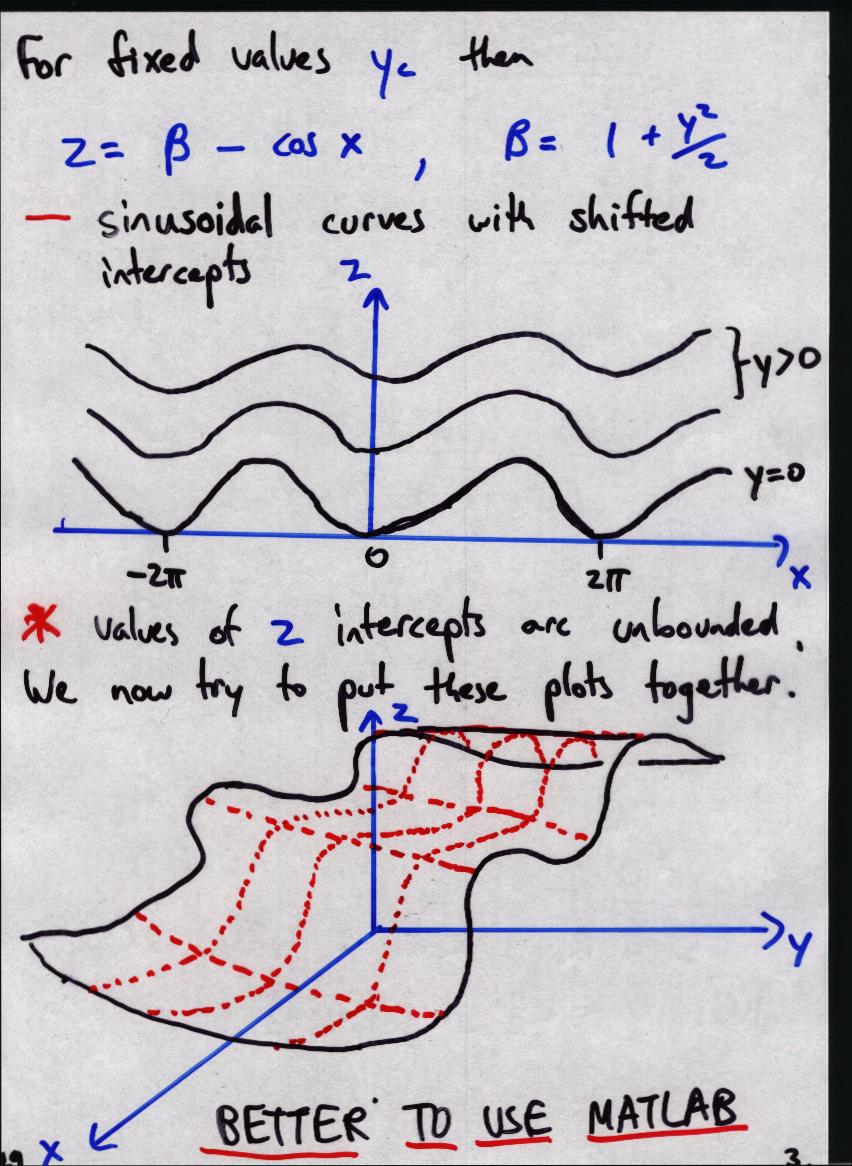 For fixed values yc then
z = β - cos x , β = 1 + y²/2
— sinusoidal curves with shifted
intercepts
z
} y>0
y=0
-2π 0 2π x
* values of z intercepts are unbounded.
We now try to put these plots together.
z
y
x
BETTER TO USE MATLAB
3.